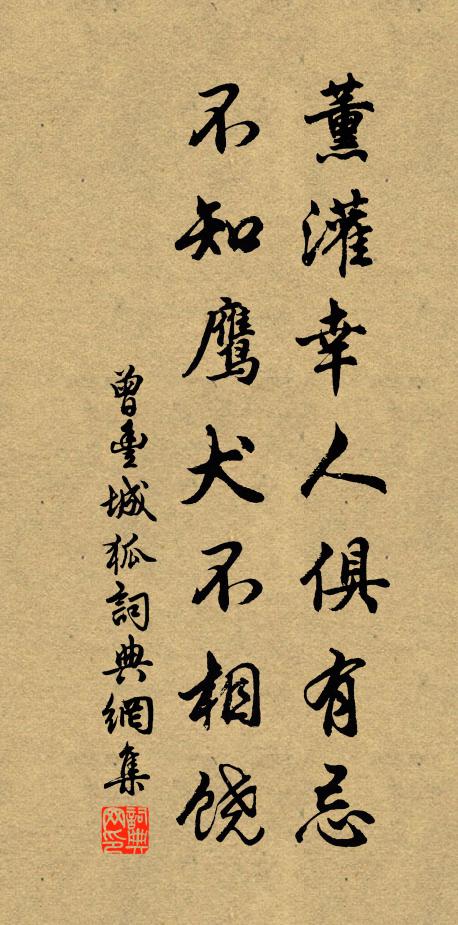 薰灌幸人俱有忌
不知鹰犬不相饶
曾豊城狐詞典網集
詞典网印